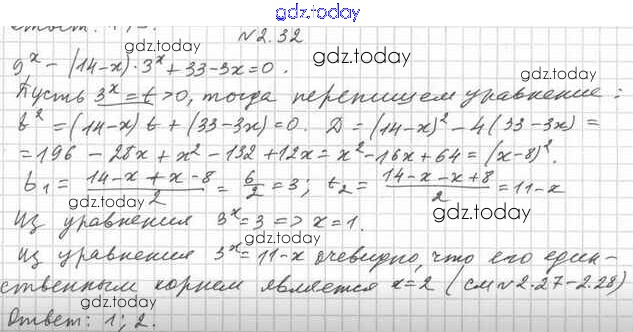 gdz.today
№2.32
gdz.today
gdz.today
9^x - (14-x)·3^x + 33-3x=0.
gdz.today
Пусть 3^x = t > 0, тогда перепишем уравнение:
t^2 = (14-x)t + (33-3x)=0. D = (14-x)^2 - 4(33-3x) =
gdz.today
gdz.today
= 196 - 28x + x^2 - 132 + 12x = x^2 - 16x + 64 = (x-8)^2.
t1 = (14-x+x-8)/2 = 6/2 = 3; t2 = (14-x-x+8)/2 = 11-x
gdz.today
gdz.today
Из уравнения 3^x = 3 => x=1.
gdz.today
Из уравнения 3^x = 11-x очевидно, что его един-
ственным корнем является x=2 (см №2.27-2.28)
gdz.today
gdz.today
Ответ: 1; 2.